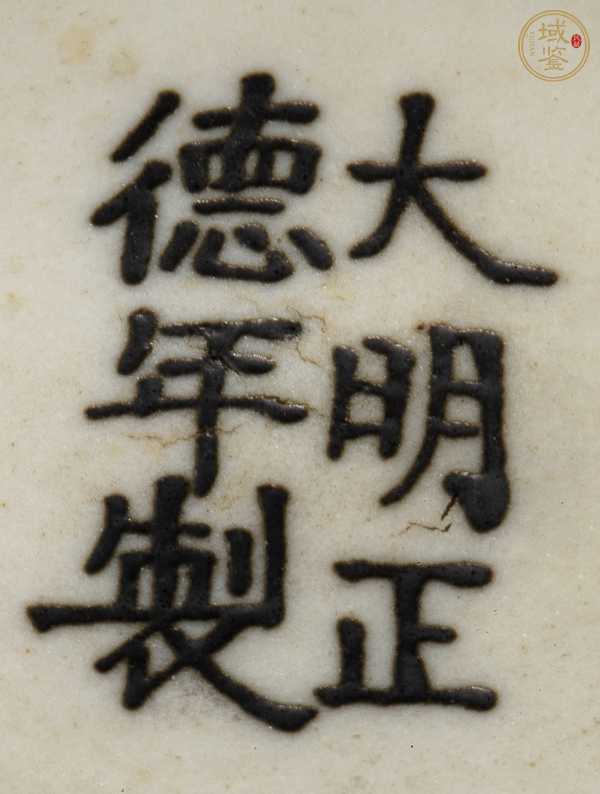 大明正
德年製
域鉴
YUJIAN